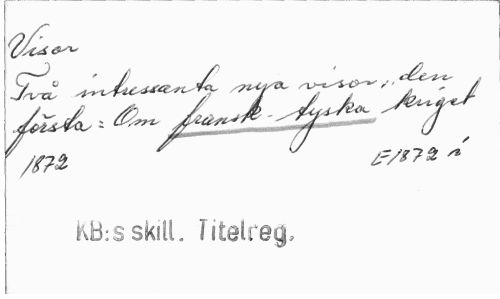 Visor
Två intressanta nya visor; den
första: Om fransk-tyska kriget
1872 E1872 i
KB:s skill. Titelreg.